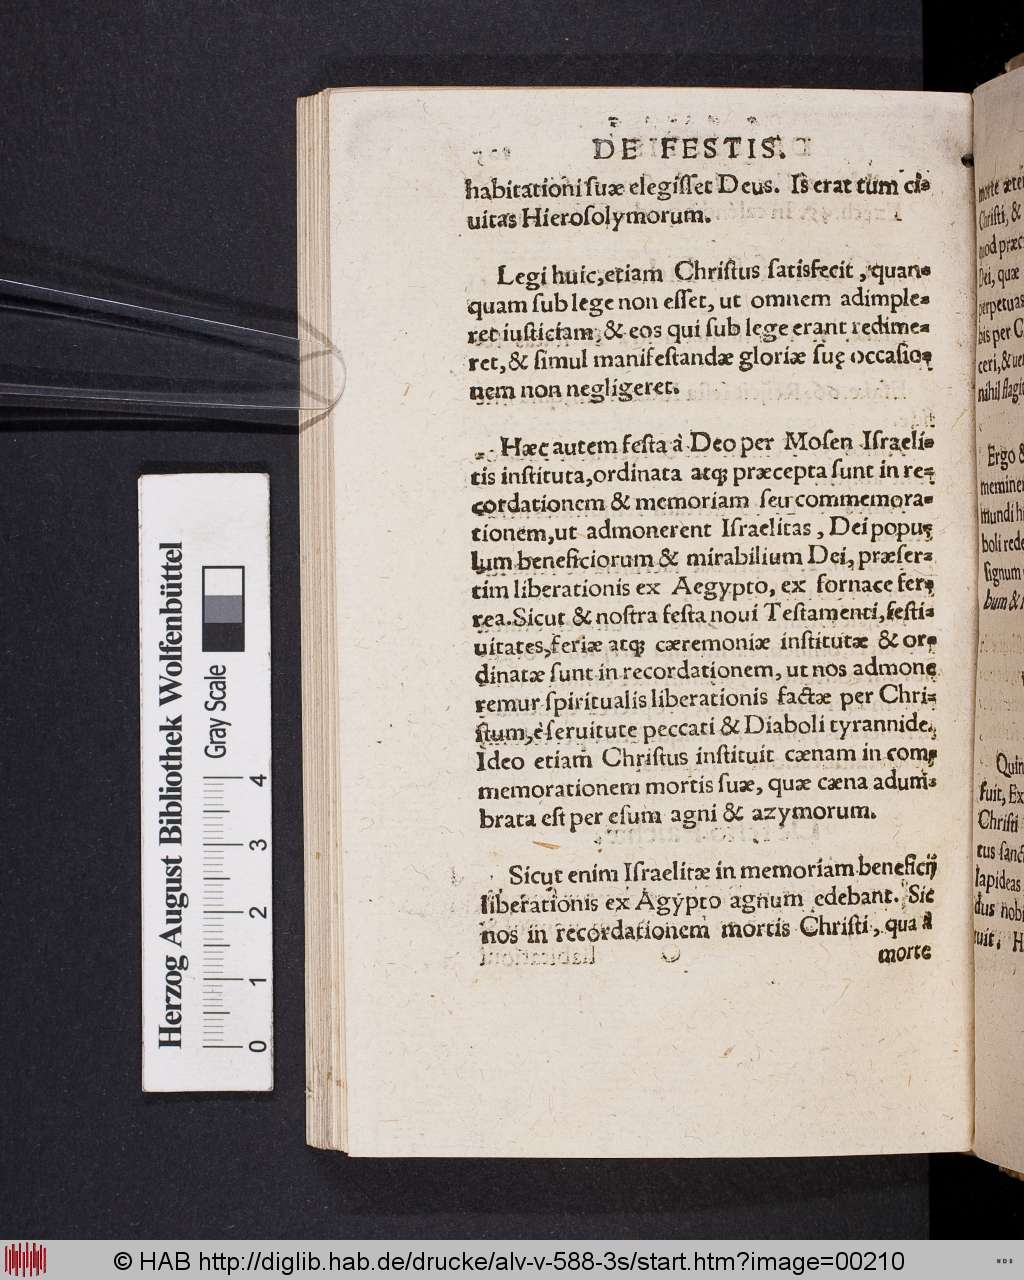 DE FESTIS.
habitationi suæ elegisset Deus. Is erat tum ci-
uitas Hierosolymorum.
Legi huic, etiam Christus satisfecit, quan-
quam sub lege non esset, ut omnem adimple-
ret iusticiam, & eos qui sub lege erant redime-
ret, & simul manifestandæ gloriæ suę occasio-
nem non negligeret.
Hæc autem festa à Deo per Mosen Israeli-
tis instituta, ordinata atq; præcepta sunt in re-
cordationem & memoriam seu commemora-
tionem, ut admonerent Israelitas, Dei popu-
lum beneficiorum & mirabilium Dei, præser-
tim liberationis ex Aegypto, ex fornace fer-
rea. Sicut & nostra festa noui Testamenti, festi-
uitates, feriæ atq; cæremoniæ institutæ & or-
dinatæ sunt in recordationem, ut nos admone
remur spiritualis liberationis factæ per Chri-
stum, è seruitute peccati & Diaboli tyrannide.
Ideo etiam Christus instituit cænam in com-
memorationem mortis suæ, quæ cæna adum-
brata est per esum agni & azymorum.
Sicut enim Israelitæ in memoriam beneficij
liberationis ex Agypto agnum edebant. Sic
nos in recordationem mortis Christi, qua à
morte
morte æter
Christi, &
quod præc
Dei, quæ
perpetuas
bis per C
ceri, & ue
nihil flagit
Ergo &
meminer
mundi hi
boli rede
signum
bum & 
Quin
fuit, Ex
Christi
tus sanct
lapideas
dus nobi
uit. H
Herzog August Bibliothek Wolfenbüttel
Gray Scale
0 1 2 3 4
© HAB http://diglib.hab.de/drucke/alv-v-588-3s/start.htm?image=00210